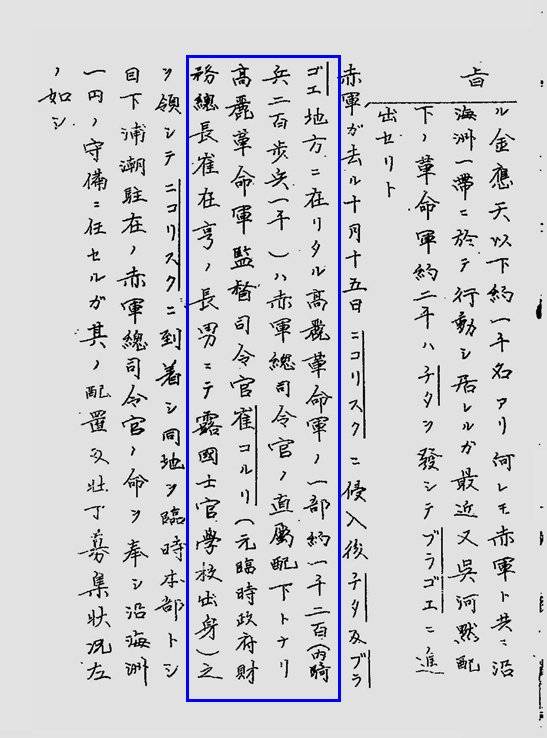 旨
ル金應天以下約一千名アリ何レモ赤軍ト共ニ沿
海洲一帶ニ於テ行動シ居レルガ最近又吳河黙配
下ノ革命軍約二千ハチタヲ發シテブラゴエニ進
出セリト
赤軍ガ去ル十月十五日ニコリスクニ侵入後チタ及ブラ
ゴエ地方ニ在リタル高麗革命軍ノ一部約一千二百(內騎
兵二百步兵一千)ハ赤軍總司令官ノ直屬配下トナリ
高麗革命軍監督司令官崔コルリ(元臨時政府財
務總長崔在亨ノ長男ニテ露國士官學校出身)之
ヲ領シテニコリスクニ到着シ同地ヲ臨時本部トシ
目下浦潮駐在ノ赤軍總司令官ノ命ヲ奉シ沿海洲
一円ノ守備ニ任セルガ其ノ配置及壯丁募集狀況左
ノ如シ